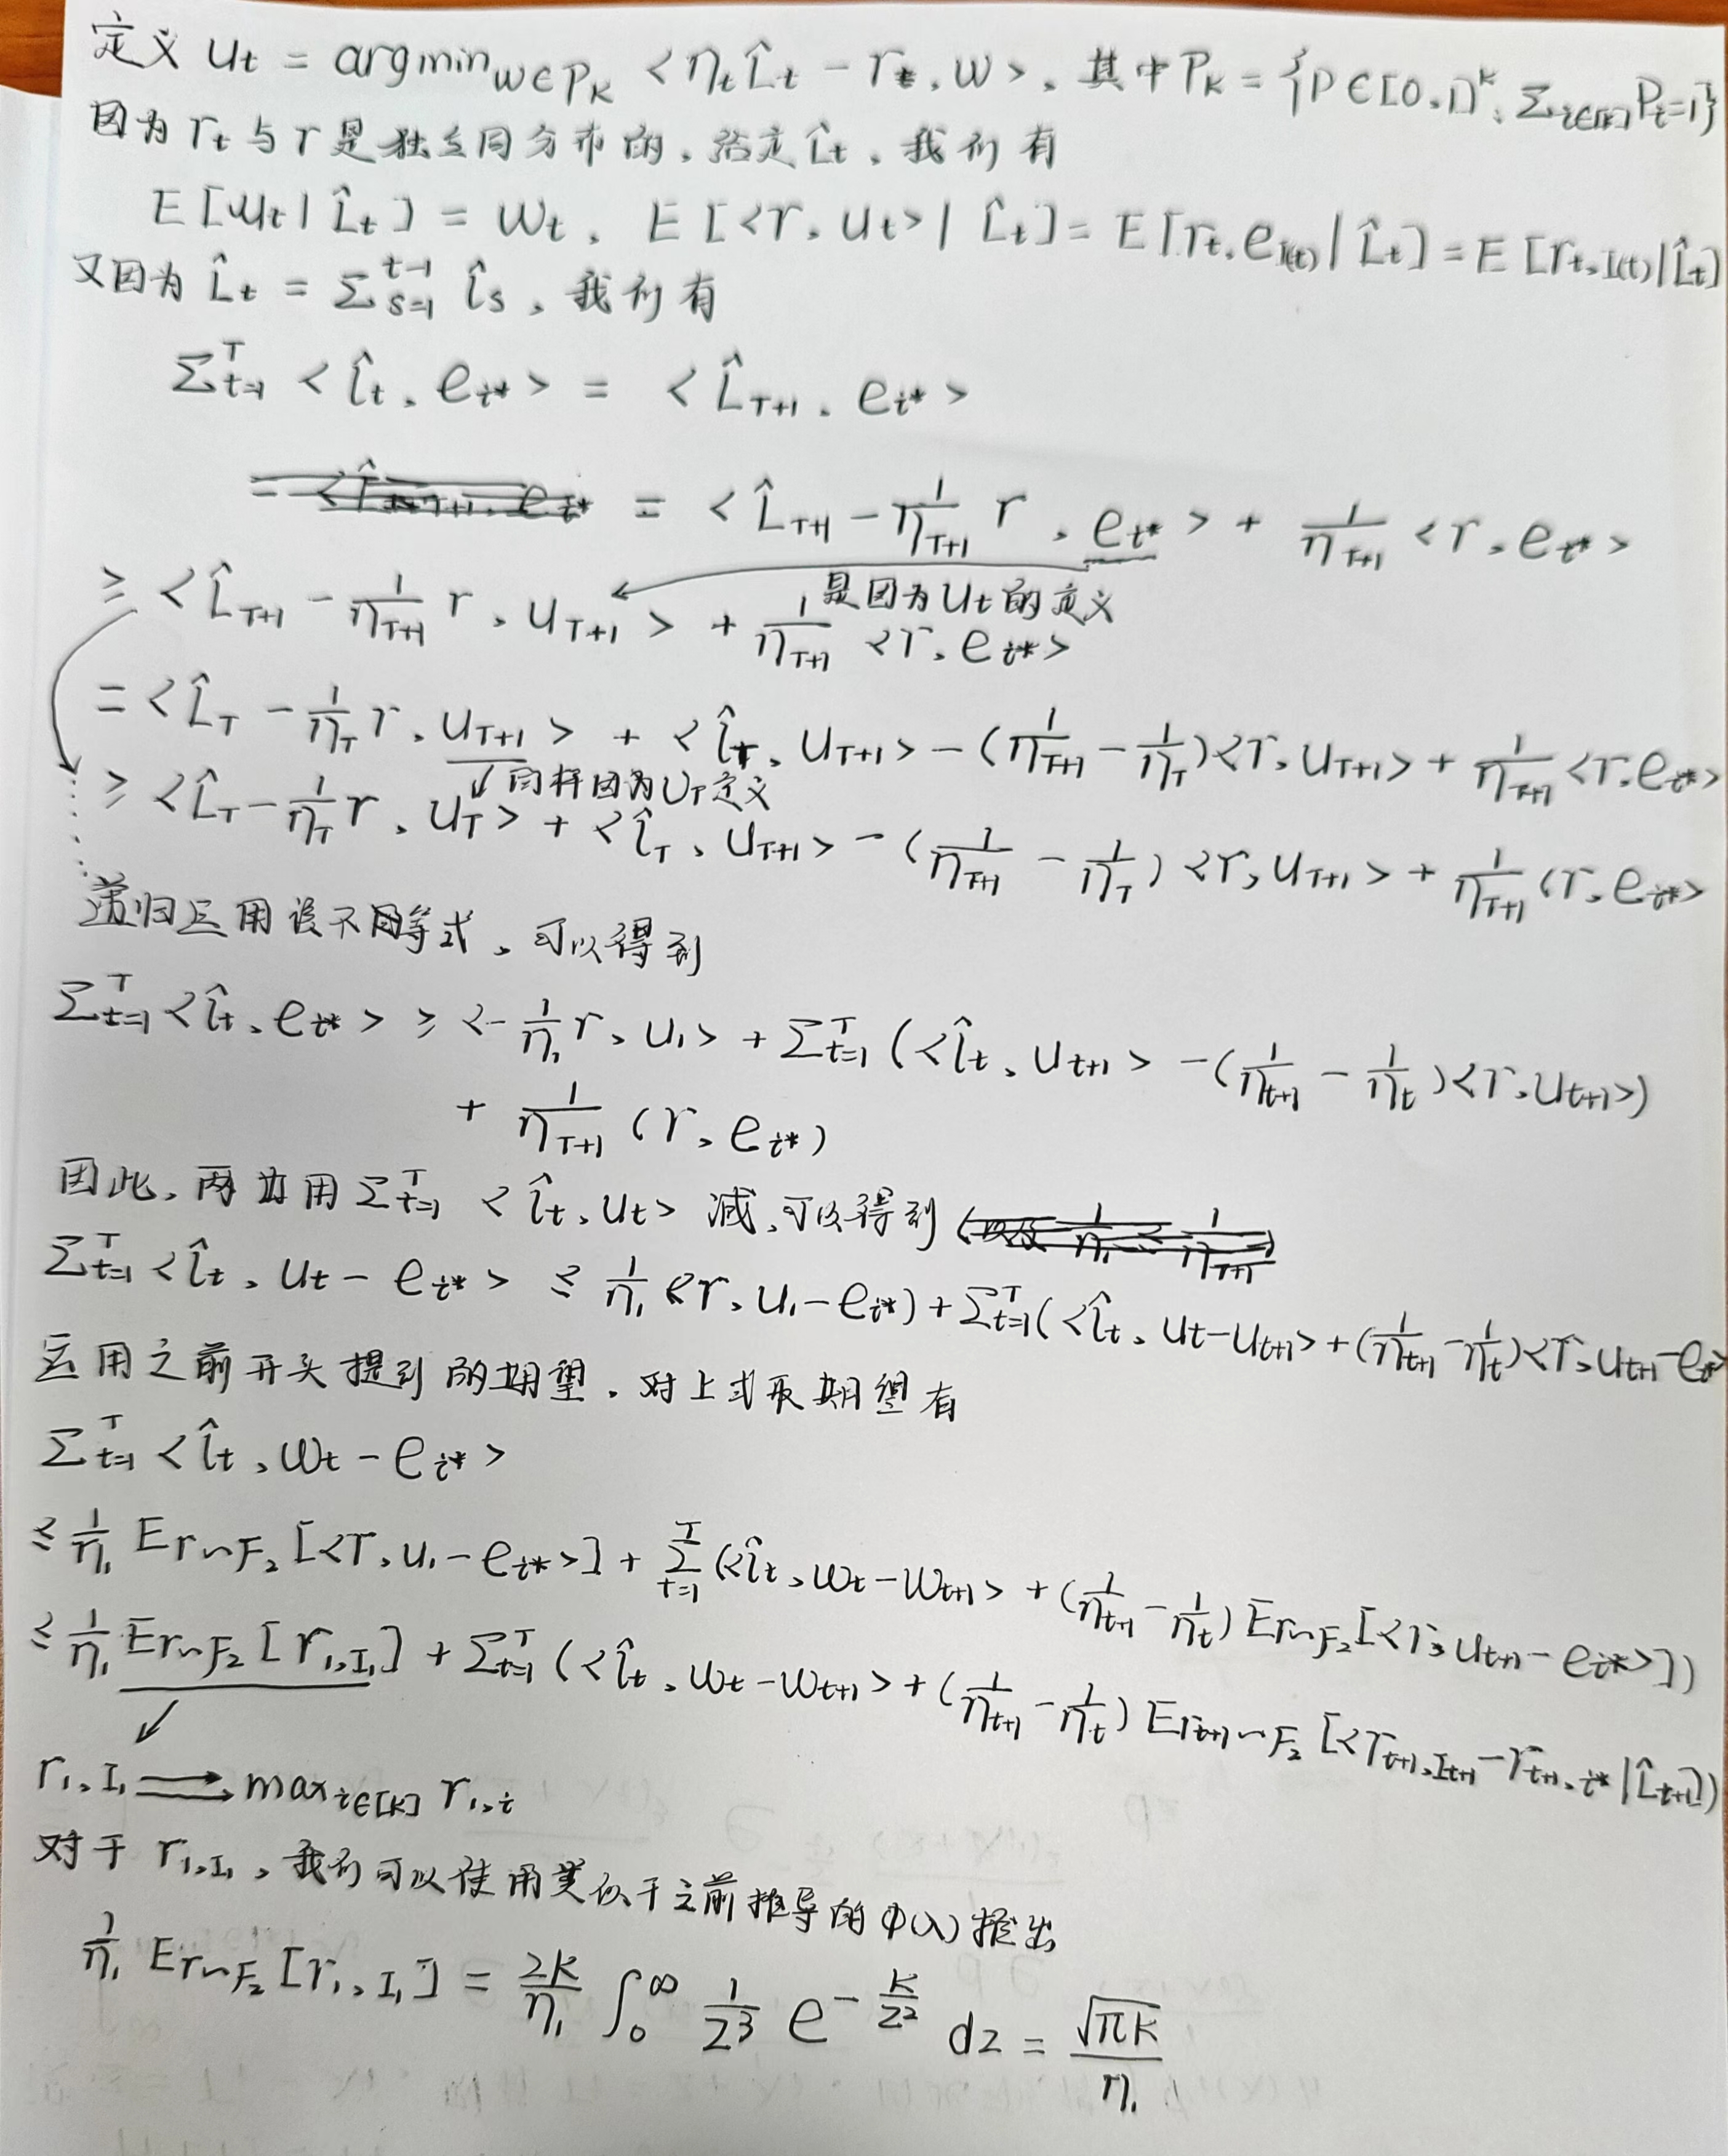 定义 u_t = argmin_{w∈P_K} <η_t L̂_t - r_t, w>, 其中 P_K = {P∈[0,1]^K: Σ_{i∈[K]} P_i=1}
因为 r_t 与 r 是独立同分布的, 给定 L̂_t, 我们有
E[u_t | L̂_t] = w_t, E[<r, u_t> | L̂_t] = E[r_t, e_{I(t)} | L̂_t] = E[r_{t,I(t)} | L̂_t]
又因为 L̂_t = Σ_{s=1}^{t-1} l̂_s, 我们有
Σ_{t=1}^T <l̂_t, e_{i*}> = <L̂_{T+1}, e_{i*}>
= <L̂_{T+1} - 1/η_{T+1} r, e_{i*}> + 1/η_{T+1} <r, e_{i*}>
是因为 u_t 的定义
≥ <L̂_{T+1} - 1/η_{T+1} r, u_{T+1}> + 1/η_{T+1} <r, e_{i*}>
= <L̂_T - 1/η_T r, u_{T+1}> + <l̂_T, u_{T+1}> - (1/η_{T+1} - 1/η_T)<r, u_{T+1}> + 1/η_{T+1} <r, e_{i*}>
同样因为 u_T 定义
≥ <L̂_T - 1/η_T r, u_T> + <l̂_T, u_{T+1}> - (1/η_{T+1} - 1/η_T) <r, u_{T+1}> + 1/η_{T+1} <r, e_{i*}>
递归运用该不等式, 可以得到
Σ_{t=1}^T <l̂_t, e_{i*}> ≥ <-1/η_1 r, u_1> + Σ_{t=1}^T (<l̂_t, u_{t+1}> - (1/η_{t+1} - 1/η_t)<r, u_{t+1}>)
+ 1/η_{T+1} (r, e_{i*})
因此, 两边用 Σ_{t=1}^T <l̂_t, u_t> 减, 可以得到
Σ_{t=1}^T <l̂_t, u_t - e_{i*}> ≤ 1/η_1 <r, u_1 - e_{i*}) + Σ_{t=1}^T (<l̂_t, u_t - u_{t+1}> + (1/η_{t+1} - 1/η_t)<r, u_{t+1} - e_{i*}>
运用之前开头提到的期望, 对上式取期望有
Σ_{t=1}^T <l̂_t, w_t - e_{i*}>
≤ 1/η_1 E_{r~F_2} [<r, u_1 - e_{i*}>] + Σ_{t=1}^T (<l̂_t, w_t - w_{t+1}> + (1/η_{t+1} - 1/η_t) E_{r~F_2} [<r, u_{t+1} - e_{i*}>])
≤ 1/η_1 E_{r~F_2} [r_{1,I_1}] + Σ_{t=1}^T (<l̂_t, w_t - w_{t+1}> + (1/η_{t+1} - 1/η_t) E_{r_{t+1}~F_2} [<r_{t+1,I_{t+1}} - r_{t+1,i*} | L̂_{t+1}])
r_{1,I_1} ⟹ max_{i∈[K]} r_{1,i}
对于 r_{1,I_1}, 我们可以使用类似于之前推导的 φ(λ) 推出
1/η_1 E_{r~F_2} [r_{1,I_1}] = 2K/η_1 ∫_0^∞ 1/z^3 e^{-K/z^2} dz = √(πK)/η_1